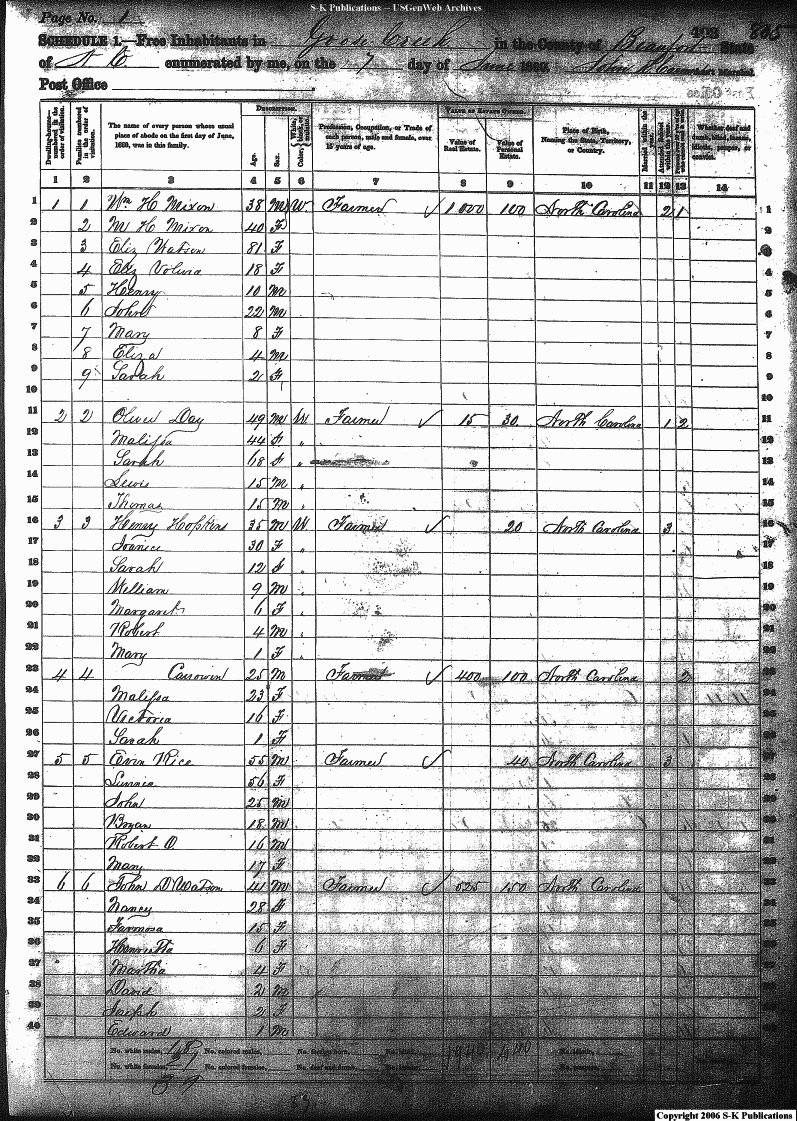 S-K Publications – USGenWeb Archives
Page No. 1
403 805
SCHEDULE 1.—Free Inhabitants in Goose Creek in the County of Beaufort State
of N C enumerated by me, on the 7 day of June 1860. John
Post Office
DESCRIPTION. VALUE OF ESTATE OWNED.
Dwelling-houses numbered in the order of visitation. Families numbered in the order of visitation. The name of every person whose usual place of abode on the first day of June, 1860, was in this family. Age. Sex. Color, Profession, Occupation, or Trade of each person, male and female, over 15 years of age. Value of Real Estate. Value of Personal Estate. Place of Birth, Naming the State, Territory, or Country. Married within the year. Attended School within the year. Whether deaf and dumb, blind, insane, idiotic, pauper, or convict.
1 2 3 4 5 6 7 8 9 10 11 12 13 14
1 1 1 Wm H Mixon 38 M W Farmer ✓ 1000 100 North Carolina 2 1 1
2 2 M H Mixon 40 F 2
3 3 Eliz Watson 81 F 3
4 4 Eliz Voliva 18 F 4
5 5 Henry 10 M 5
6 6 John 22 M 6
7 7 Mary 8 F 7
8 8 Eliza 4 M 8
9 9 Sarah 2 F 9
10 10
11 2 2 Oliver Day 49 M W Farmer ✓ 15 30 North Carolina 1 2 11
12 Malissa 44 F 12
13 Sarah 68 F 13
14 Lewis 15 M 14
15 Thomas 15 M 15
16 3 3 Henry Hopkins 35 M W Farmer ✓ 20 North Carolina 3 16
17 30 F 17
18 Sarah 12 F 18
19 William 9 M 19
20 Margaret 6 F 20
21 Robert 4 M 21
22 Mary 1 F 22
23 4 4 Carrowin 25 M Farmer ✓ 400 100 North Carolina 2
24 Malissa 23 F 24
25 Victoria 16 F 25
26 Sarah 1 F 26
27 5 5 Rice 55 M Farmer ✓ 40 North Carolina 3 27
28 56 F 28
29 John 25 M 29
30 Bryan 18 M 30
31 Robert O. 16 M 31
32 Mary 17 F 32
33 6 6 John D Watson 41 M Farmer ✓ 525 150 North Carolina 33
34 Nancy 28 F
35 15 F
36 Henrietta 6 F
37 Martha 4 F
38 David 2 M
39 Joseph 2 F
40 Edward 1 M
No. white males, No. colored males, No. foreign born, No. blind, 1940 No. idiotic,
No. white females, No. colored females, No. deaf and dumb, No. insane, No. paupers,
39
83
Copyright 2006 S-K Publications